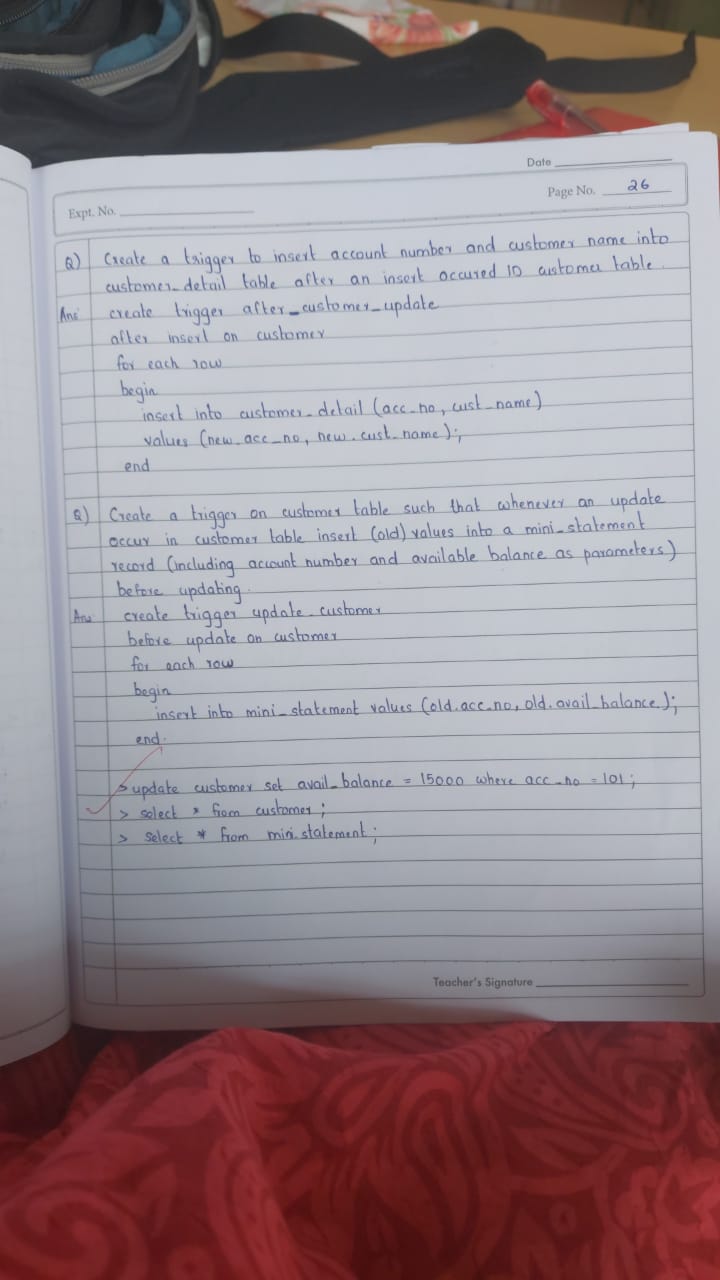 Date
Page No. 26
Expt. No.
Q) Create a trigger to insert account number and customer name into
customer_detail table after an insert accured 10 customer table.
Ans: create trigger after_customer_update
after insert on customer
for each row
begin
insert into customer_detail (acc_no, cust_name)
values (new.acc_no, new.cust_name);
end
Q) Create a trigger on customer table such that whenever an update
occur in customer table insert (old) values into a mini_statement
record (including account number and available balance as parameters)
before updating.
Ans: create trigger update_customer
before update on customer
for each row
begin
insert into mini_statement values (old.acc.no, old.avail_balance);
end.
> update customer set avail_balance = 15000 where acc_no = 101;
> select * from customer;
> select * from mini.statement;
Teacher's Signature